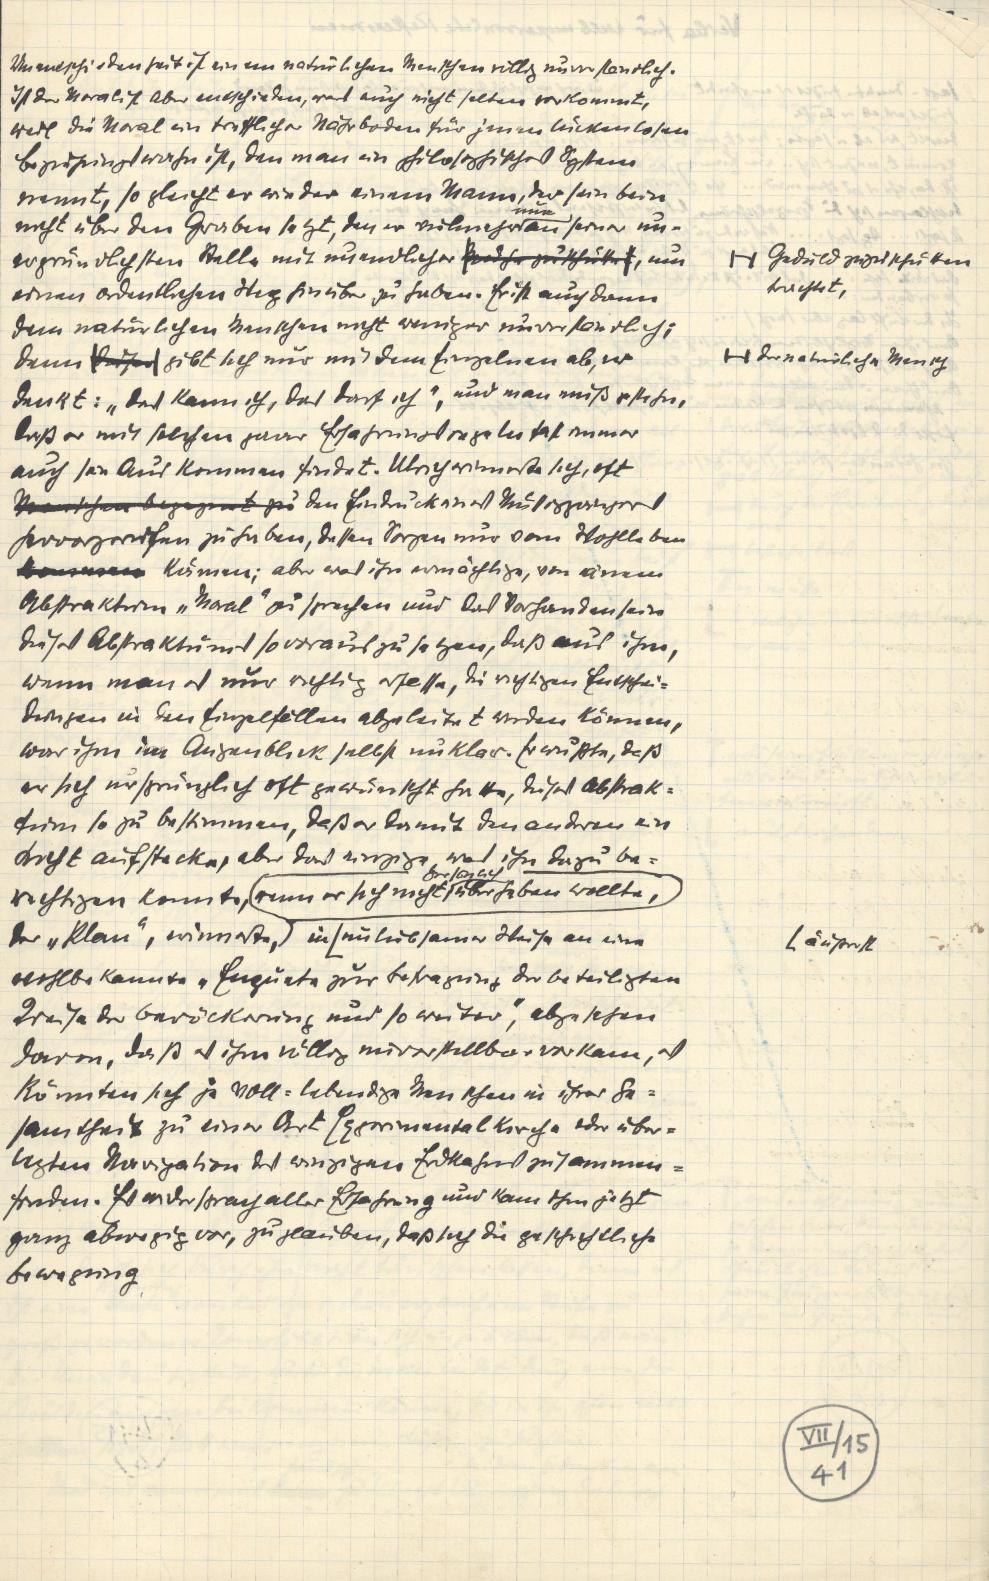 Unentschiedenheit ist einem natürlichen Menschen völlig unverständlich.
Ist der Moralist aber entschieden, was auch nicht selten vorkommt,
weil die Moral ein trefflicher Nährboden für jenen lückenlosen
Beziehungswahn ist, den man ein philosophisches System
nennt, so gleicht er wieder einem Mann, der sein Bein
nicht über den Graben setzt, den er vielmehr nur an seiner un-
ergründlichsten Stelle mit unendlicher zuzuschütten, um
Geduld zuzuschütten
trachtet,
einen ordentlichen Steg hinüber zu haben. Er ist auch dann
dem natürlichen Menschen nicht weniger unverständlich;
denn dieser gibt sich nur mit dem Einzelnen ab, er
der natürliche Mensch
denkt: „das kann ich, das darf ich", und man muß gestehn,
daß er mit solchen paar Erfahrungsregeln fast immer
auch sein Auskommen findet. Ulrich erinnerte sich, oft
Menschen begegnet zu den Eindruck eines Müßiggängers
hervorgerufen zu haben, dessen Sorgen nur vom Wohlleben
kommen kämen; aber was ihn ermächtige, von einem
Abstraktum „Moral" zu sprechen und das Vorhandensein
dieses Abstraktums so vorauszusetzen, daß aus ihm,
wenn man es nur richtig erfasse, die richtigen Entschei-
dungen in den Einzelfällen abgeleitet werden können,
war ihm im Augenblick selbst unklar. Er wußte, daß
er sich ursprünglich oft gewünscht hatte, dieses Abstrak-
tum so zu bestimmen, daß er damit den anderen ein
Licht aufstecke, aber das einzige, was ihn dazu be-
rechtigen konnte, wenn er sich nicht überheben wollte,
der „Plan", erinnerte, in unliebsamer Weise an eine
äußerst
wohlbekannte „Enquete zur Befragung der beteiligten
Kreise der Bevölkerung und so weiter", abgesehen
davon, daß es ihm völlig unvorstellbar vorkam, es
könnten sich je voll-lebendige Menschen in ihrer Ge-
samtheit zu einer Art Experimentalkirche oder über-
legten Navigation des winzigen Erdkahns zusammen-
finden. Es widersprach aller Erfahrung und kam ihm jetzt
ganz abwegig vor, zu glauben, daß sich die geschichtliche
Bewegung
VII/15
41